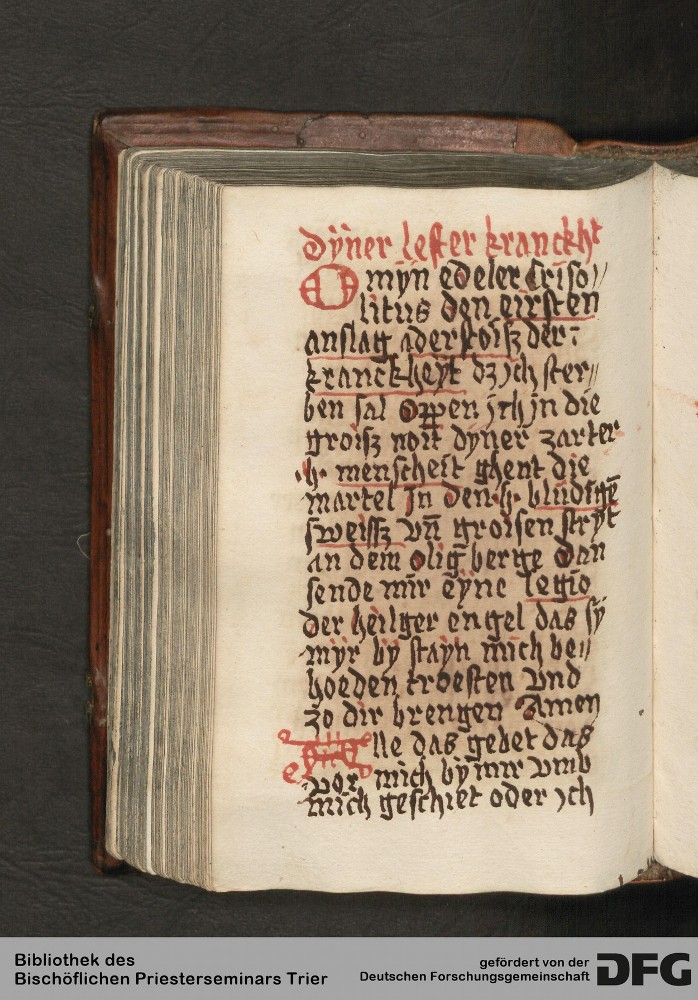 dÿner lester kranckht
O mÿn edeler Criso//
litus den eirsten
anslag aderstoisz der
kranckheyt dz jch ster//
ben sal Oppen jch jn die
groisz noit dyner zarter
·h· menscheit ghent die
martel jn den ·h· bludigē
sweissz vn̄ groisen stryt
an dem olig berge Dan
sende mir eyne legio
der heilger engel das sy
myr by stayn mich be//
hoeden troesten vnd
zo dir brengen Amen
Alle das gebet das
vor mich by mir vmb
mich geschiet oder jch
Bibliothek des
Bischöflichen Priesterseminars Trier
gefördert von der
Deutschen Forschungsgemeinschaft
DFG